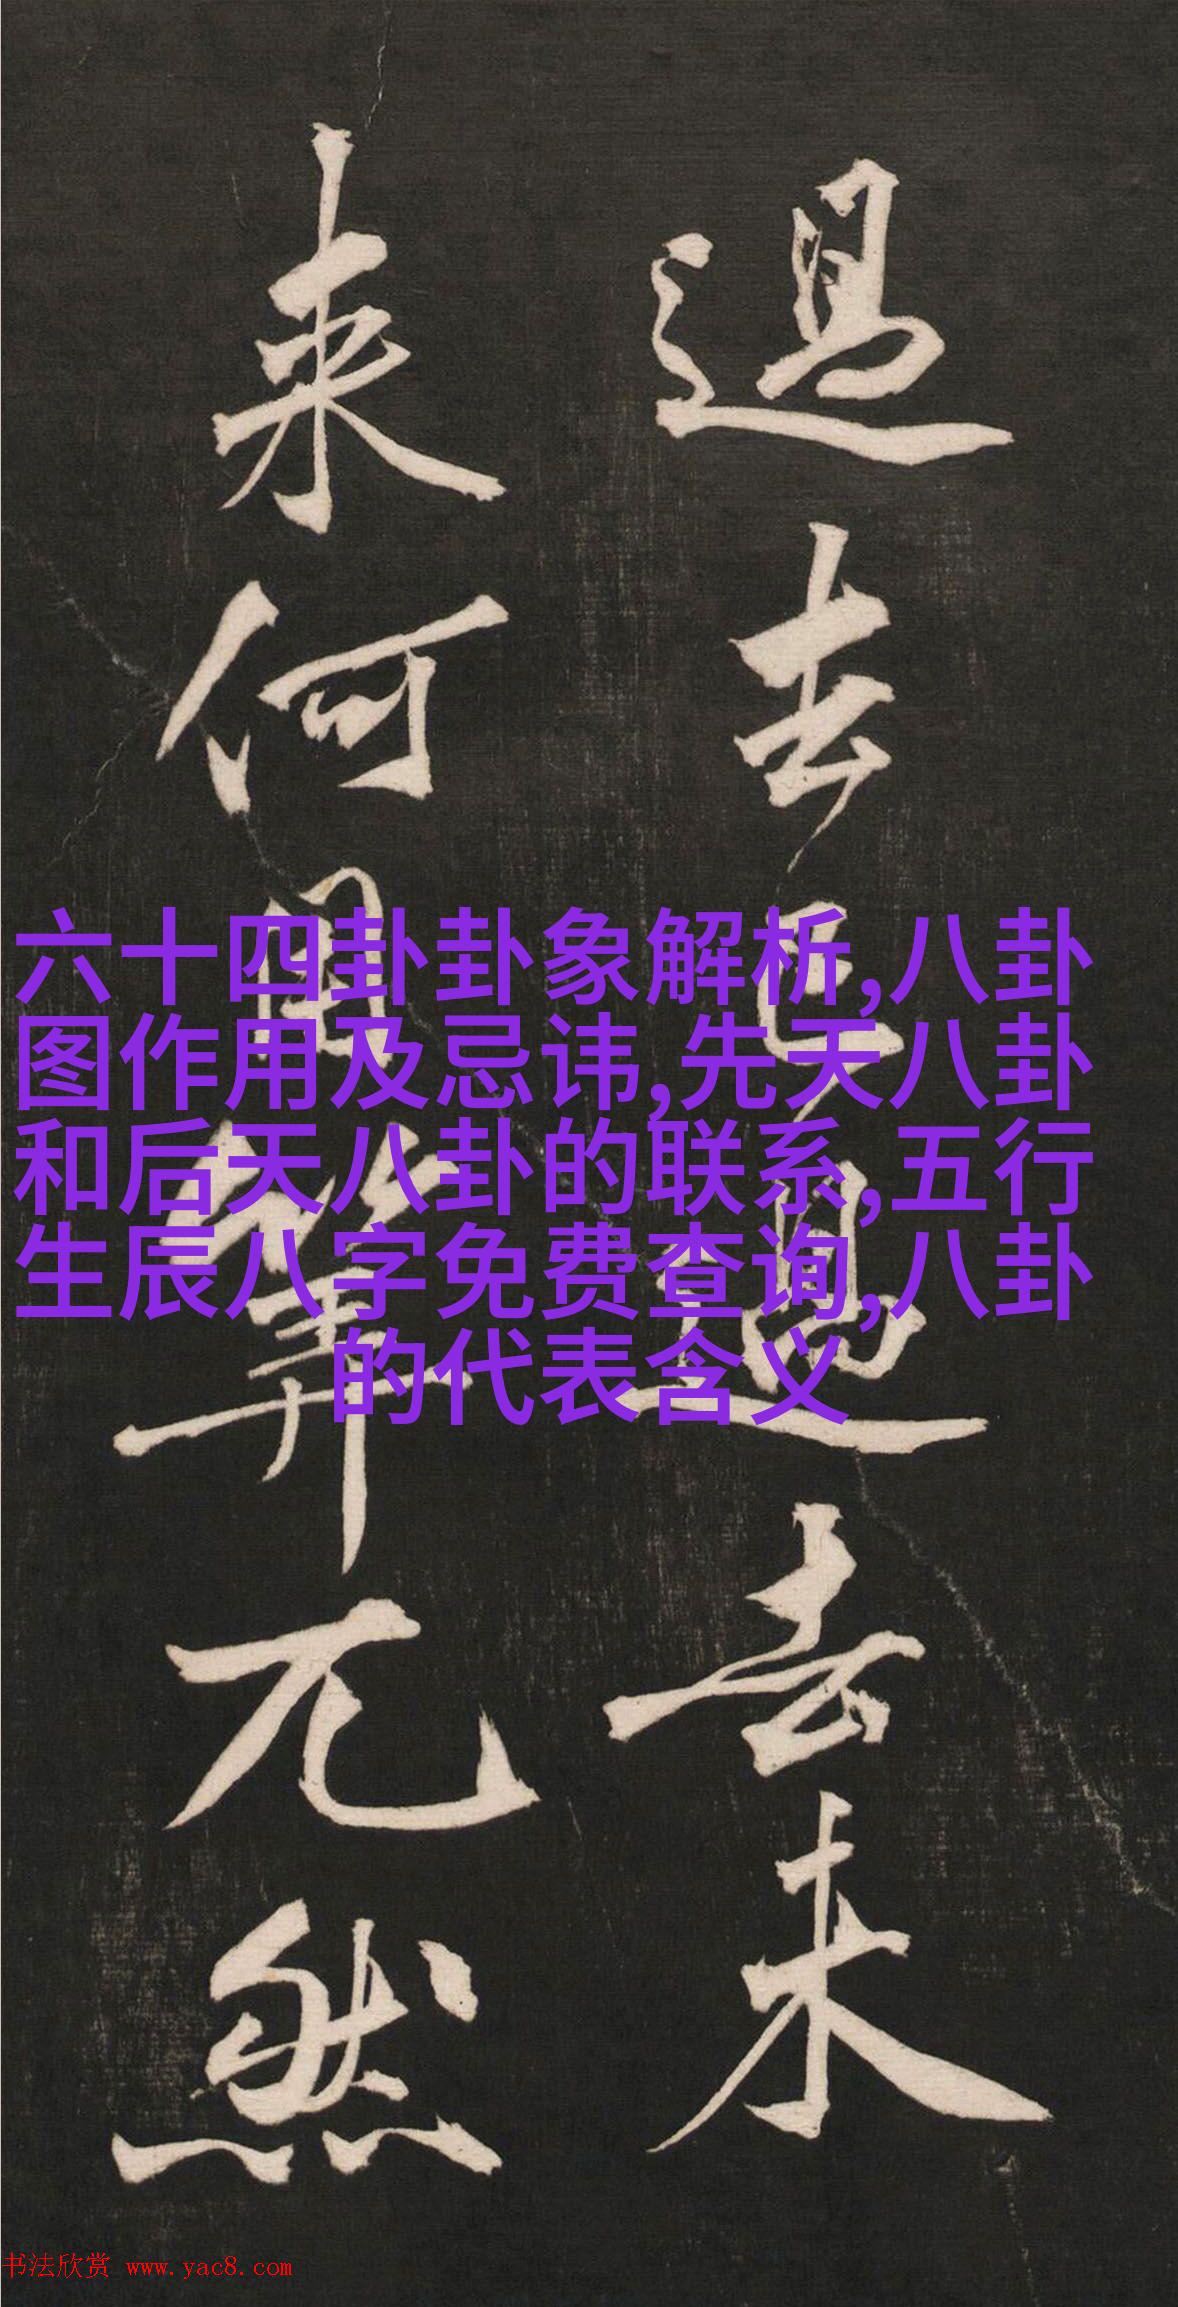 過去已過去未
来何用筭兀然
六十四卦卦象解析,八卦
图作用及忌讳,先天八卦
和后天八卦的联系,五行
生辰八字免费查询,八卦
的代表含义
书法欣赏 www.yac8.com